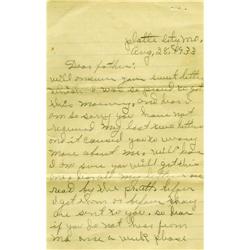 Platte City, Mo.
Aug, 28, 1933
Dear father:
will answer your sweet letter
which I was so proud to get
this morning, and dear I
am so sorry you have not
received my last two letters
and it caused you to worry
more about me, well dear
I am sure you will get this
one, dear all my letters are
read by the before
I get them or before they
are sent to you, so dear
if you do not hear from
me once a week please